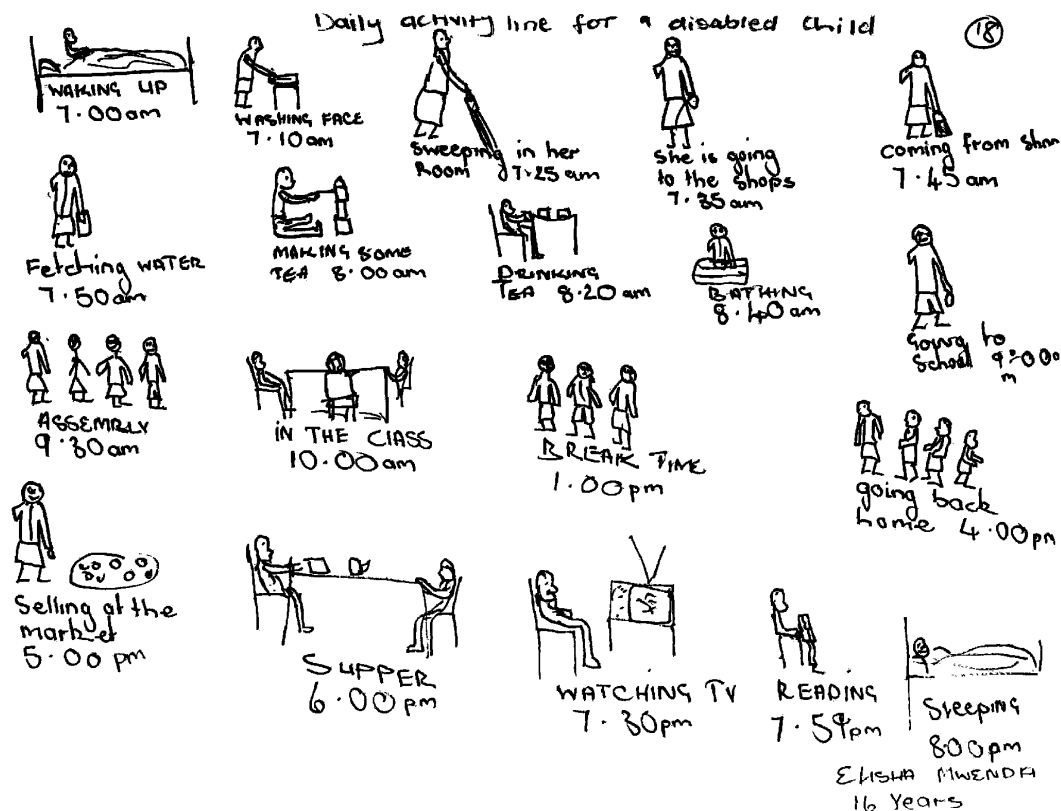 Daily activity line for a disabled child
18
WAKING UP
7.00am
WASHING FACE
7.10am
Sweeping in her
Room 7.25am
She is going
to the shops
7.35am
coming from
7.45am
Fetching WATER
7.50am
MAKING SOME
TEA 8.00am
DRINKING
TEA 8.20am
BATHING
8.40am
Going to
School 9.00
m
ASSEMBLY
9.30am
IN THE CLASS
10.00am
BREAK TIME
1.00pm
going back
home 4.00pm
Selling at the
market
5.00 pm
SUPPER
6.00pm
WATCHING TV
7.30pm
READING
7.59pm
Sleeping
8.00pm
ELISHA MWENDA
16 Years